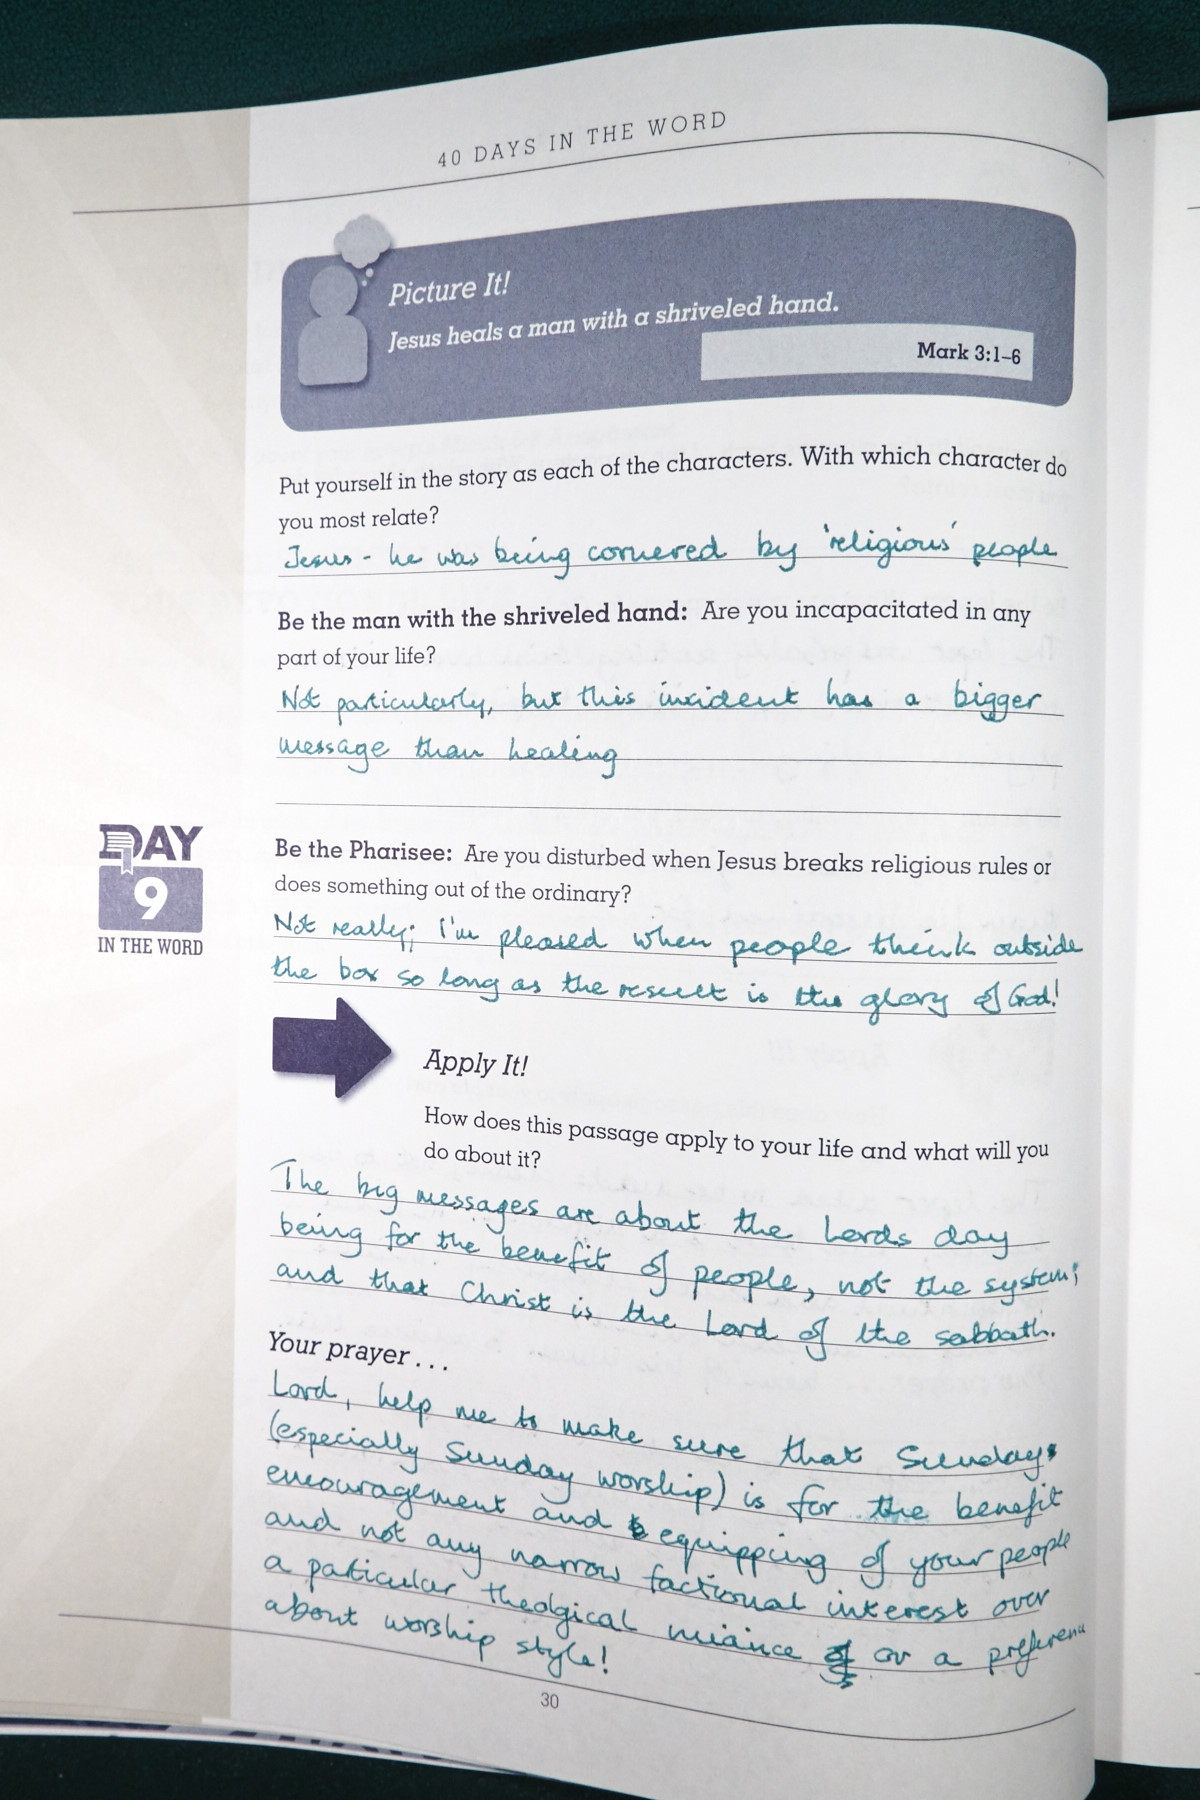 40 DAYS IN THE WORD
Picture It!
Jesus heals a man with a shriveled hand.
Mark 3:1–6
Put yourself in the story as each of the characters. With which character do
you most relate?
Jesus - he was being cornered by 'religious' people
Be the man with the shriveled hand: Are you incapacitated in any
part of your life?
Not particularly, but this incident has a bigger
message than healing
DAY
9
IN THE WORD
Be the Pharisee: Are you disturbed when Jesus breaks religious rules or
does something out of the ordinary?
Not really; I'm pleased when people think outside
the box so long as the result is the glory of God!
Apply It!
How does this passage apply to your life and what will you
do about it?
The big messages are about the Lords day
being for the benefit of people, not the system;
and that Christ is the Lord of the sabbath.
Your prayer . . .
Lord, help me to make sure that Sundays
(especially Sunday worship) is for the benefit
encouragement and equipping of your people
and not any narrow factional interest over
a particular theolgical nuance or a preference
about worship style!
30